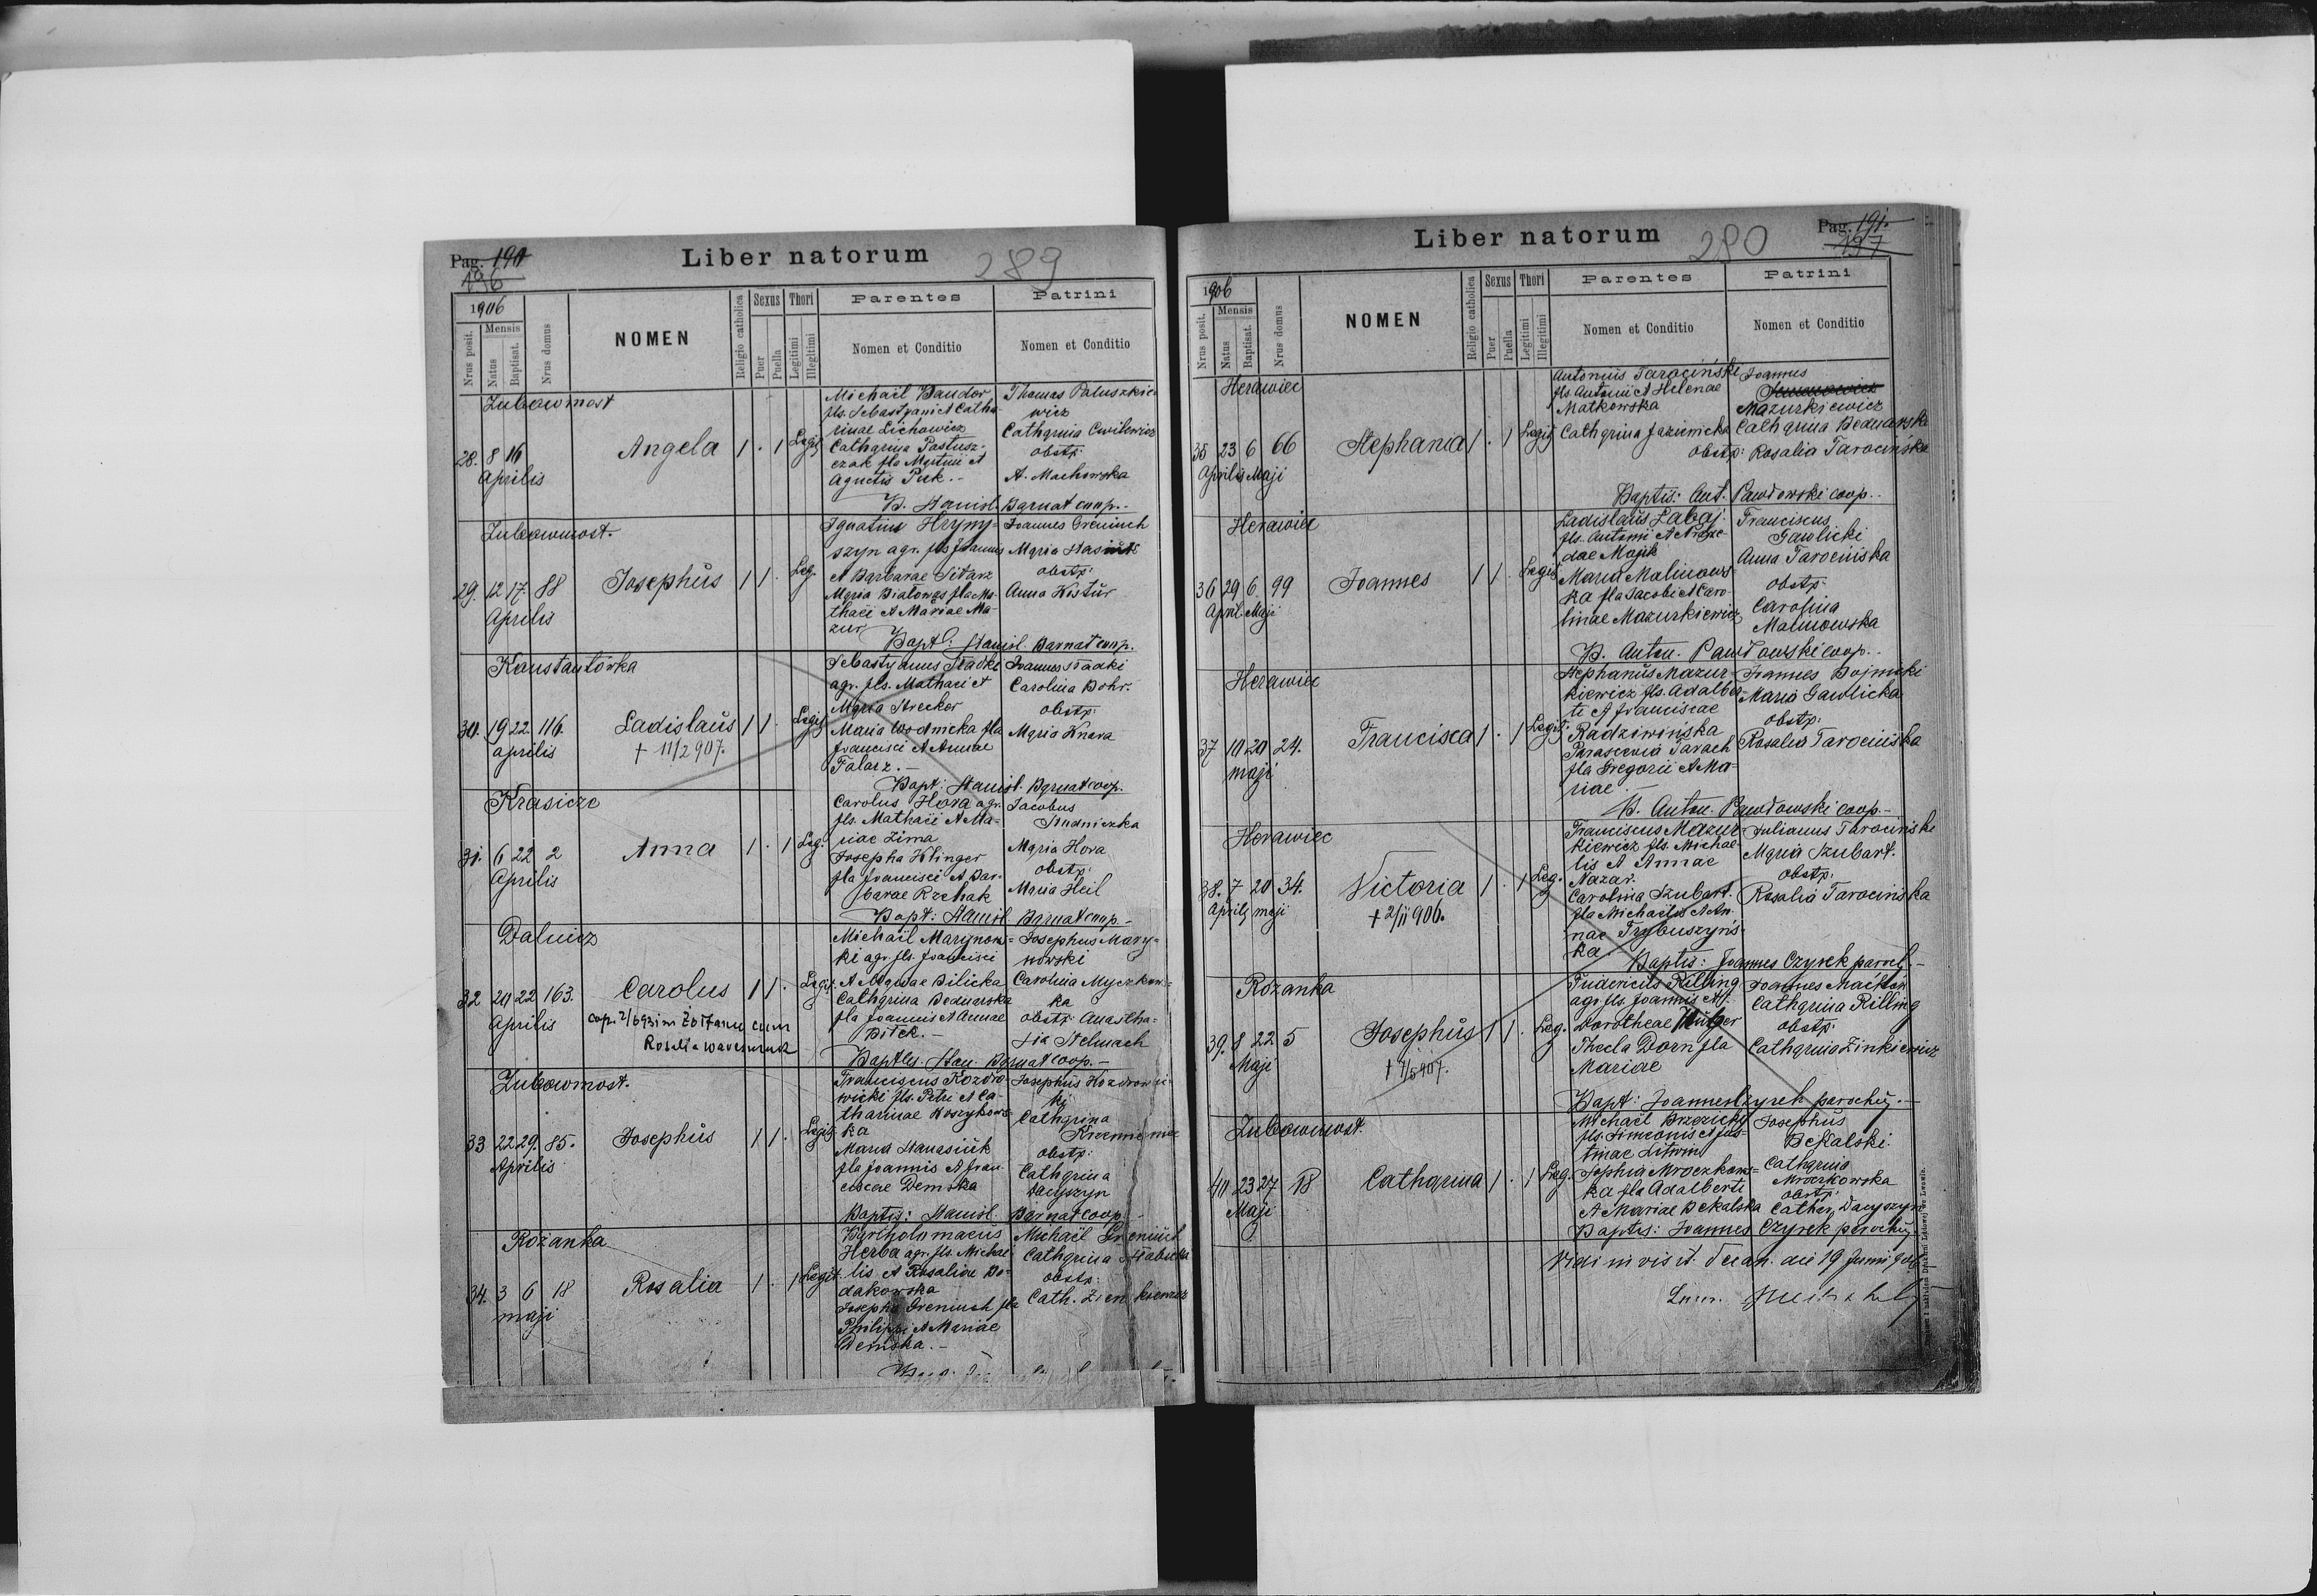 Pag. 190
196
Liber natorum
289
1906
Nrus posit.
Mensis
Natus
Baptisat.
Nrus domus
NOMEN
Religio catholica
Sexus
Puer
Puella
Thori
Legitimi
Illegitimi
Parentes
Nomen et Conditio
Patrini
Nomen et Conditio
Zubowmost
28. 8 16
Aprilis
Angela 1 . 1 Legit.
Michaël Bandor
fls. Sebastyani et Catha
rinae Lichowicz
Catharina Pastusz-
czak fla Martini et
Agnetis Puk. -
Thomas Paluszkie-
wicz
Catharina Cwilewicz
obstp:
A. Machowska
B. Stanisl. Barnat coop. -
Zubowmost.
29. 12 17. 88
Aprilis
Josephus 1 1 . Leg.
Ignatius Hryny-
szyn agr. fls Joannis
et Barbarae Sitarz
Maria Białowąs fla Ma-
thaei et Mariae Ma-
zur
Joannes Greniuch
Maria Stasiuk
obstp:
Anna Kistur
Bapt: Stanisl. Barnat coop.
Konstantówka
30. 19 22. 116.
Aprilis
Ladislaus 1 1 . Legit
+ 11/2 907.
Sebastyanus Sładki
agr. fls. Mathaei et
Maria Strecker
Maria Wodnicka fla
Francisci et Annae
Talarz. -
Joannes Sładki
Carolina Bohr.
obstp:
Maria Knera
Bapt: Stanisl. Barnat coop.
Krasicze
31. 6 22 2
Aprilis
Anna 1 . 1 Leg.
Carolus Hora agr.
fls. Mathaei et Ma-
riae Zima
Josepha Klinger
fla Francisci et Bar-
barae Rzehak
Jacobus
Studniczka
Maria Hora
obstp:
Maria Heil
Bapt: Stanisl. Barnat coop -
Dalnicz
32 20 22 163.
Aprilis
Carolus 1 1 . Legit.
Michaël Marynow-
ki agr. fls. Francisci
et Agatae Bilicka
Catharina Bednarska
fla Joannis et Annae
Bitek. -
Josephus Mary-
nowski
Carolina Myczkow-
ka
obstp: Anastha-
sia Stelmach
Baptis. Stan. Barnat coop. -
Zubowmost.
33 22 29. 85.
Aprilis
Josephus 1 1 . Legit
Franciscus Kozdro-
wicki fls. Petri et Ca-
tharinae Koszykows-
ka
Maria Stanasiuk
fla Joannis et Fran-
ciscae Demska
Josephus Kozdrowi-
ki
Catharina
obstp:
Catharina
Dacyszyn
Baptis: Stanisl. Barnat coop. -
Rożanka
34. 3 6 18
maji
Rosalia 1 . 1 Legit.
Bartholomaeus
Herba agr. fls. Michae-
lis et Rosaliae Bo-
dakowska
Josepha Greniuch fla
Philippi et Mariae
Demska. -
Michaël Greniuch
Catharina
obstp:
Cath. Zienkiewicz
Liber natorum
280
Pag. 191.
197
1906
Nrus posit.
Mensis
Natus
Baptisat.
Nrus domus
NOMEN
Religio catholica
Sexus
Puer
Puella
Thori
Legitimi
Illegitimi
Parentes
Nomen et Conditio
Patrini
Nomen et Conditio
Herawiec
35 23 6 66
Aprilis Maji
Stephania 1 . 1 Legit
Antonius Tarociński
fls. Antonii et Helenae
Matkowska
Catharina Jazienicka
Joannes
Mazurkiewicz
Catharina Bednarska
obstp: Rosalia Tarocińska
Baptis: Ant. Pawłowski coop. -
Herawiec
36 29 6. 99
April. Maji
Joannes 1 1 . Legit
Ladislaus Labaj
fls. Antonii et
dae Majik
Maria Malinows-
ka fla Jacobi et Caro-
linae Mazurkiewicz
Franciscus
Gawlicki
Anna Tarocińska
obstp:
Carolina
Malinowska
B. Anton. Pawłowski coop. -
Herawiec
37 10 20 24.
maji
Francisca 1 . 1 Legit.
Stephanus Mazur-
kiewicz fls. Adalber-
ti et Franciscae
Radziwińska
Parascevia Tarach
fla Gregorii et Ma-
riae. -
Joannes Bojnicki
Maria Gawlicka
obstp:
Rosalia Tarocińska
B. Anton. Pawłowski coop. -
Herawiec
38. 7 20 34.
Aprilis maji
Victoria 1 . 1 Leg.
+ 2/11 906.
Franciscus Mazur-
kiewicz fls. Michae-
lis et Annae
Nazar.
Carolina Szubart.
fla Michaëlis et An-
nae Trybuszyńs-
ka. -
Julianus Tarociński
Maria Szubart.
obstp:
Rosalia Tarocińska
Baptis: Joannes Czyrek paroch. -
Rożanka
39. 8 22 5
Maji
Josephus 1 1 . Leg.
+ 7/5 907.
Fridericus Rilling
agr. fls. Joannis et
Dorotheae
Thecla Dorn fla
Mariae
Joannes
Catharina Rilling
obstp:
Catharina Zinkiewicz
Bapt: Joannes Czyrek parochus. -
Zubowmost.
40 23 27 18
Maji
Catharina 1 . 1 Leg.
Michaël Brzezicky
fls. Simeonis et Jus-
tinae Litwin
Sophia Mroczkows-
ka fla Adalberti
et Mariae Bekalska
Josephus
Bekalski.
Catharina
Mroczkowska
obstp:
Cather. Dacyszyn
Baptis: Joannes Czyrek parochus
Vidi in visit. decan. die 19 Junii 906